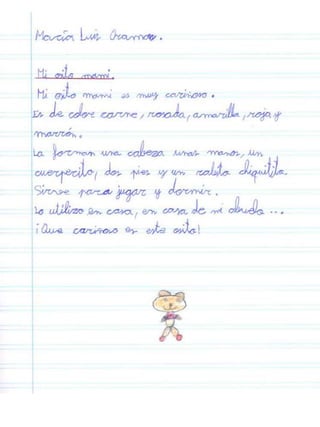 María Luis Oramas.
Mi osito mami.
Mi osito mami es muy cariñoso.
Es de color carne, rosada, amarilla, roja y
marrón.
La forman una cabeza unas manos, un
cuerpecito, dos pies y un rabito chiquitito.
Sirve para jugar y dormir.
Lo utilizo en casa, en casa de mi abuela ...
¡Que cariñoso es este osito!